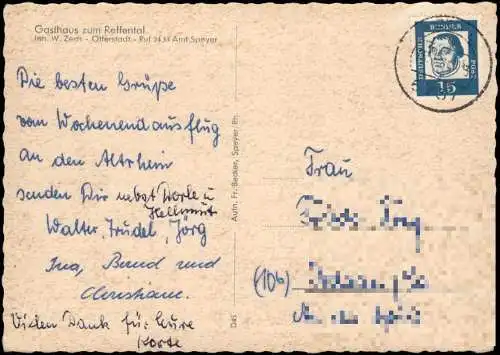 Gasthaus zum Reffental
Inh. W. Zech - Otterstadt - Ruf 2434 Amt Speyer
Die besten Grüße
vom Wochenendausflug
an den Altrhein
senden Dir nebst Dorle u
Hellmut
Walter, Trudel, Jörg
Ina, Bernd und
Christiane.
Vielen Dank für Eure
Karte
Aufn. Fr. Becker, Speyer, Rh.
Frau
(10b)
DEUTSCHE
BUNDESPOST
15